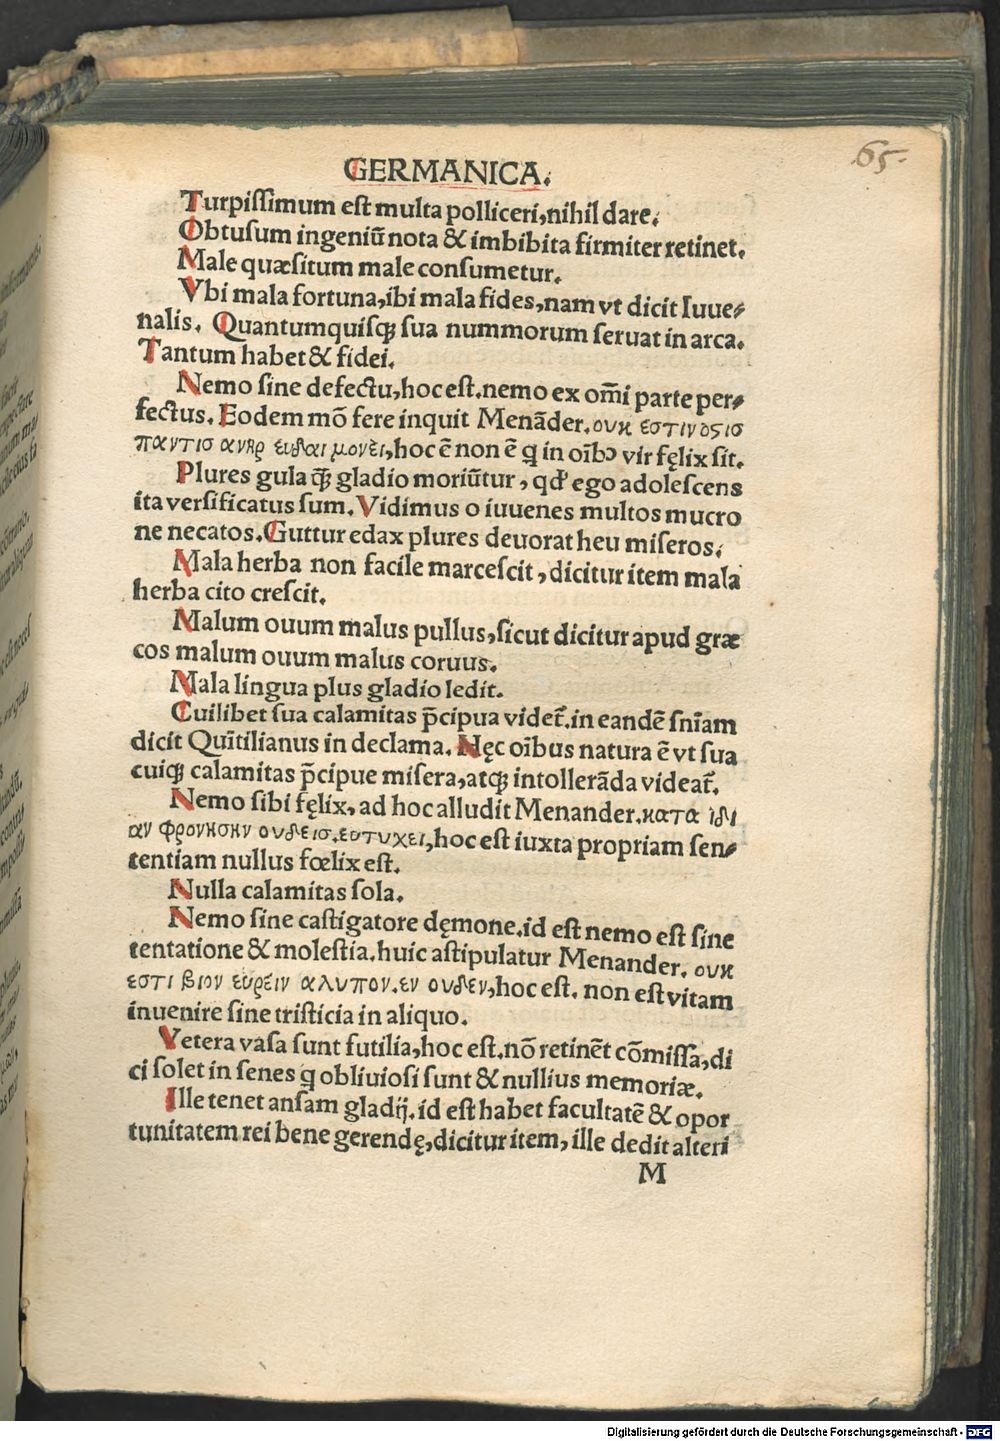 GERMANICA.
65.
Turpiſſimum eſt multa polliceri,nihil dare.
Obtuſum ingeniū nota & imbibita firmiter retinet.
Male quæſitum male conſumetur.
Vbi mala fortuna,ibi mala fides,nam vt dicit Iuue⸗
nalis. Quantum quiſqꝫ ſua nummorum ſeruat in arca.
Tantum habet & fidei.
Nemo ſine defectu,hoc eſt.nemo ex om̄i parte per⸗
fectus. Eodem mō fere inquit Menāder.ουκ εστιν οσις
παντισ ανηρ ευδαιμονει,hoc ē non ē q in oībꝰ vir fęlix ſit.
Plures gula q̄ꝫ gladio moriūtur, qd' ego adoleſcens
ita verſificatus ſum. Vidimus o iuuenes multos mucro
ne necatos. Guttur edax plures deuorat heu miſeros.
Mala herba non facile marceſcit, dicitur item mala
herba cito creſcit.
Malum ouum malus pullus,ſicut dicitur apud græ
cos malum ouum malus coruus.
Mala lingua plus gladio ledit.
Cuilibet ſua calamitas p̄cipua videt̄.in eandē ſn̄iam
dicit Quītilianus in declama. Nęc oībus natura ē vt ſua
cuiqꝫ calamitas p̄cipue miſera,atqꝫ intollerāda videat̄.
Nemo ſibi fęlix, ad hoc alludit Menander.κατα ιδι
αν φρονησην ουδεισ.εστυχει,hoc eſt iuxta propriam ſen⸗
tentiam nullus fœlix eſt.
Nulla calamitas ſola.
Nemo ſine caſtigatore dęmone.id eſt nemo eſt ſine
tentatione & moleſtia.huic aſtipulatur Menander. ουκ
εστι βιον ευρειν αλυπον.εν ουδεν,hoc eſt. non eſt vitam
inuenire ſine triſticia in aliquo.
Vetera vaſa ſunt futilia,hoc eſt.nō retinēt cōmiſſa,di
ci ſolet in ſenes q obliuioſi ſunt & nullius memoriæ.
Ille tenet anſam gladij. id eſt habet facultatē & opor
tunitatem rei bene gerendę,dicitur item, ille dedit alteri
M
Digitalisierung gefördert durch die Deutsche Forschungsgemeinschaft - DFG